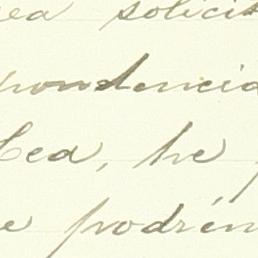 ea solicit
pondencia
Cea, he
e podrém